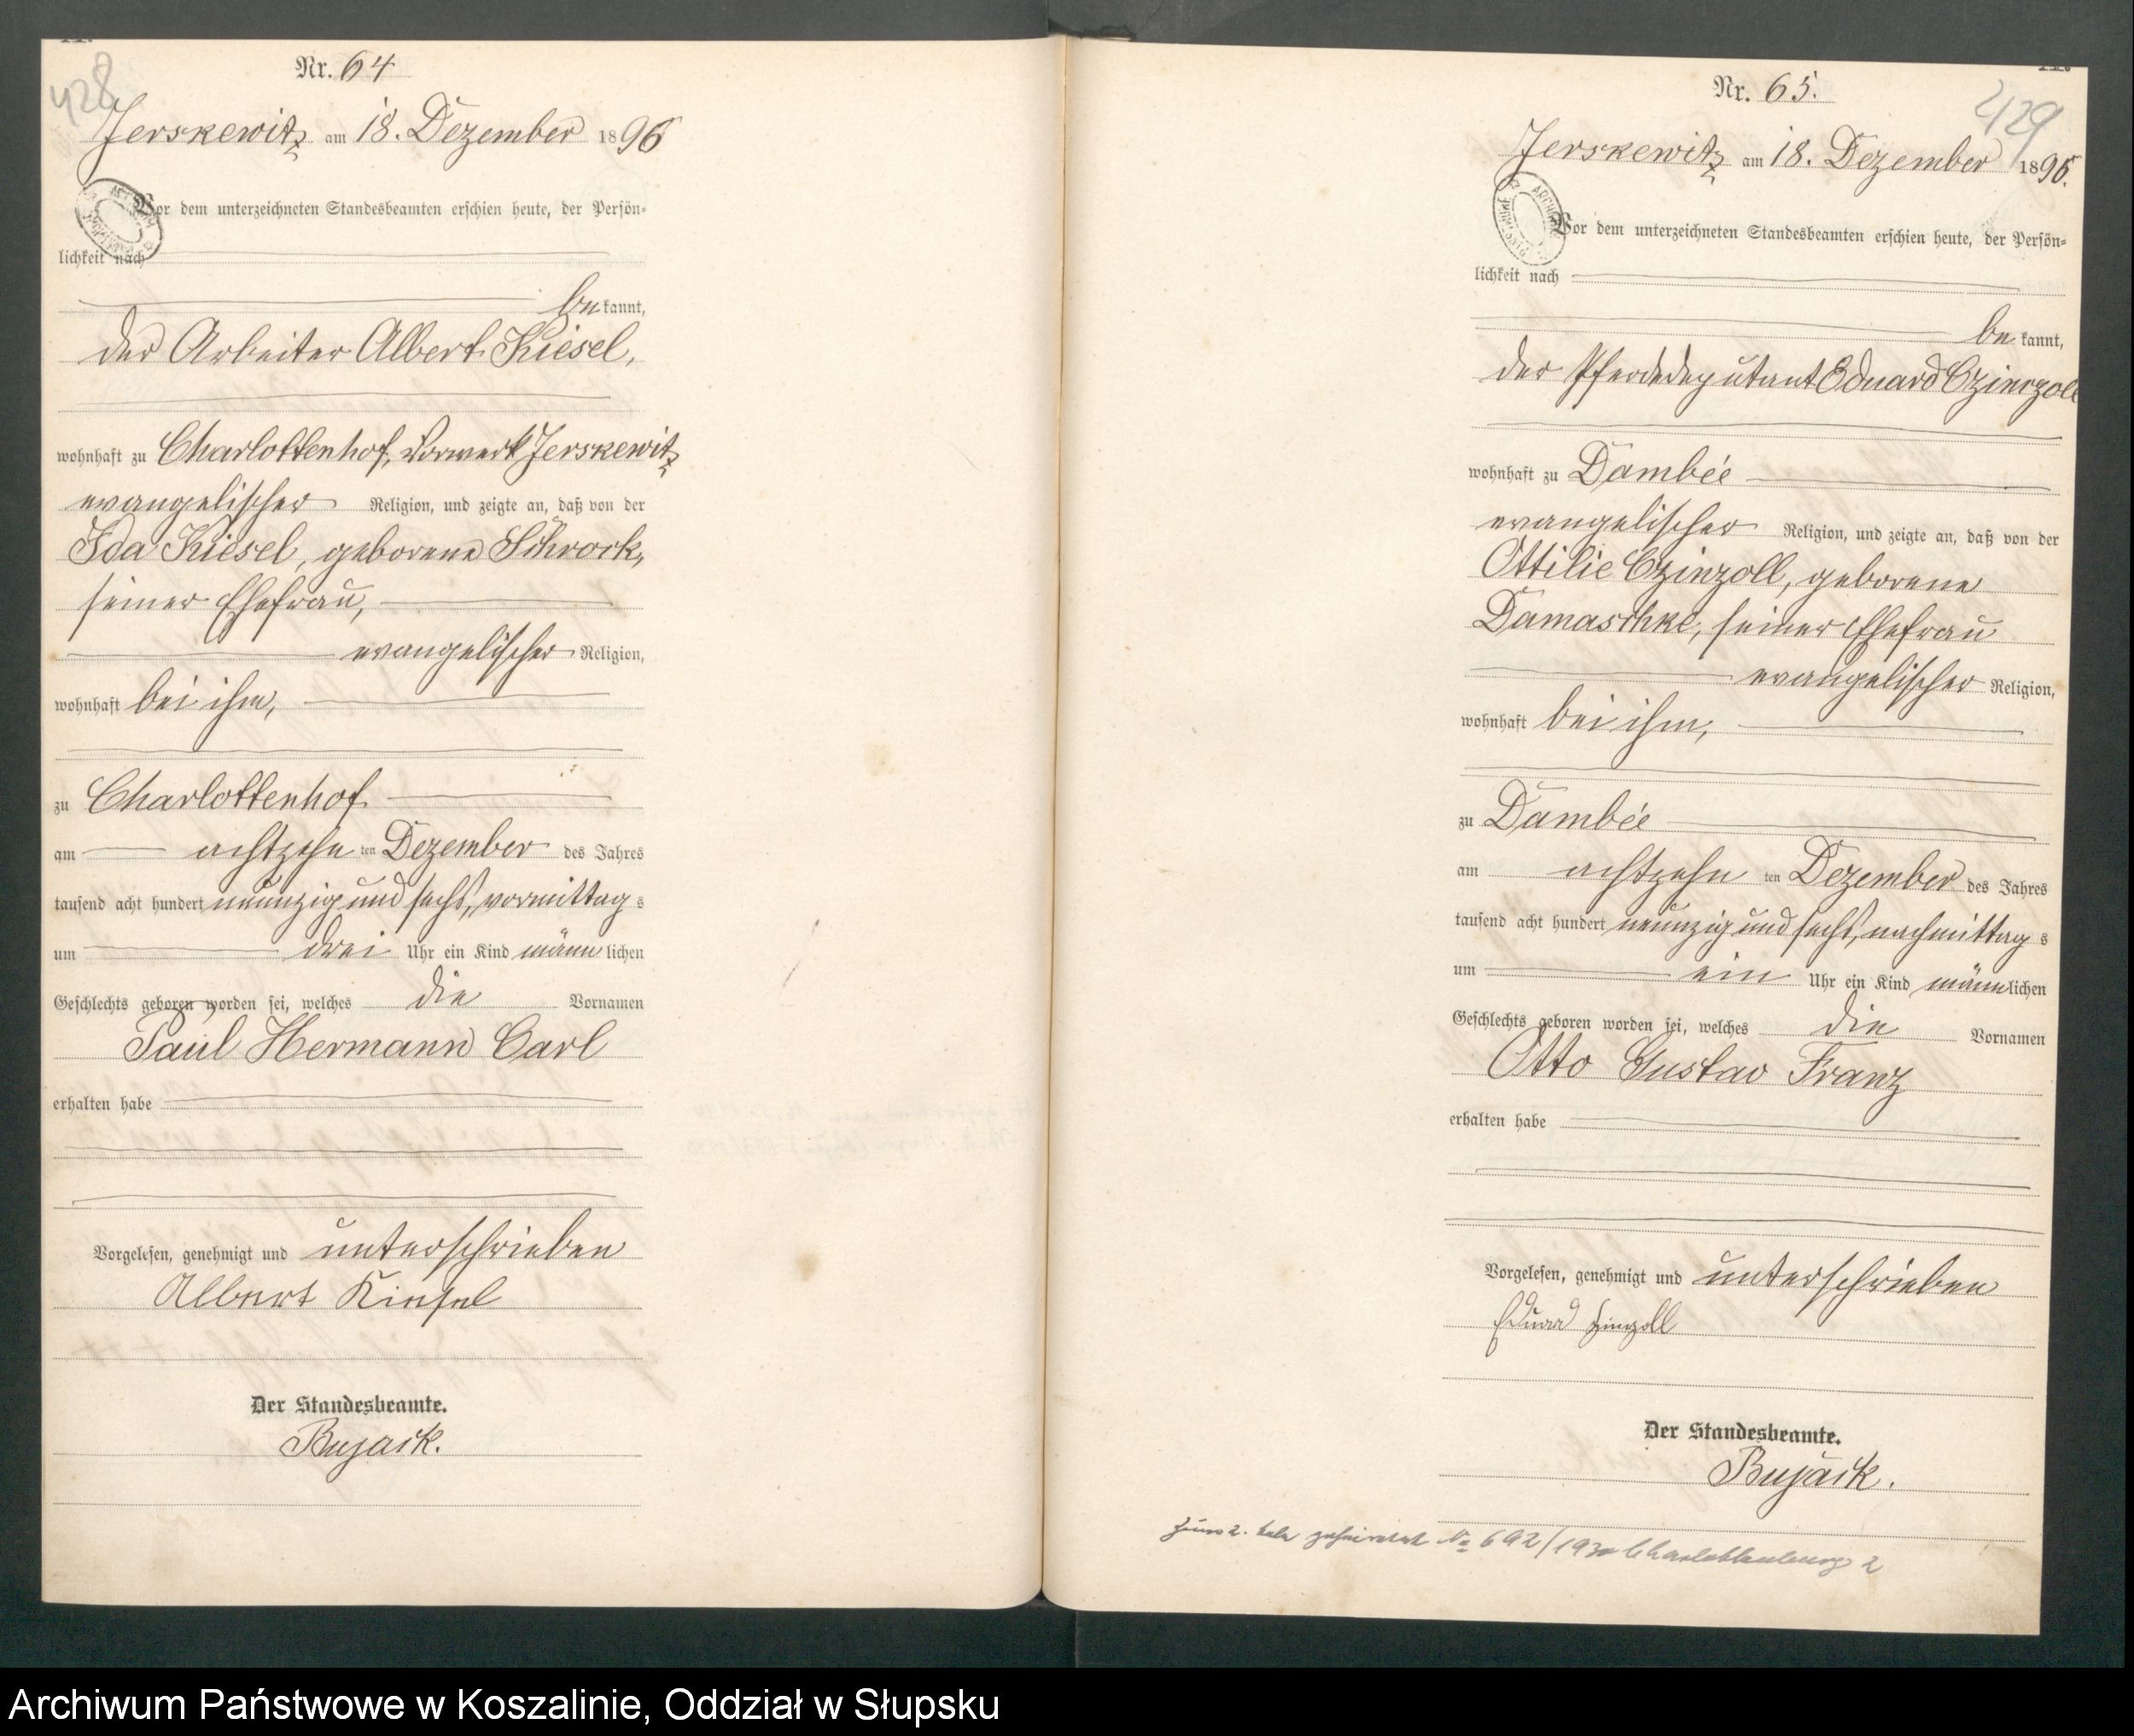 428
Nr. 64
Jerskewitz am 18. Dezember 1896
Vor dem unterzeichneten Standesbeamten erschien heute, der Persön-
lichkeit nach
bekannt,
der Arbeiter Albert Kiesel,
wohnhaft zu Charlottenhof, Vorwerk Jerskewitz
evangelischer Religion, und zeigte an, daß von der
Ida Kiesel, geborene Schrock,
seiner Ehefrau,
evangelischer Religion,
wohnhaft bei ihm,
zu Charlottenhof
am achtzehn ten Dezember des Jahres
tausend acht hundert neunzig und sechs, vormittags
um drei Uhr ein Kind männlichen
Geschlechts geboren worden sei, welches die Vornamen
Paul Hermann Carl
erhalten habe
Vorgelesen, genehmigt und unterschrieben
Albert Kiesel
Der Standesbeamte.
Bujack.
429
Nr. 65.
Jerskewitz am 18. Dezember 1896.
Vor dem unterzeichneten Standesbeamten erschien heute, der Persön-
lichkeit nach
bekannt,
der Pferdedeputant Eduard Czinzoll
wohnhaft zu Dambée
evangelischer Religion, und zeigte an, daß von der
Ottilie Czinzoll, geborene
Damaschke, seiner Ehefrau
evangelischer Religion,
wohnhaft bei ihm,
zu Dambée
am achtzehn ten Dezember des Jahres
tausend acht hundert neunzig und sechs, nachmittags
um ein Uhr ein Kind männlichen
Geschlechts geboren worden sei, welches die Vornamen
Otto Gustav Franz
erhalten habe
Vorgelesen, genehmigt und unterschrieben
Eduard
Der Standesbeamte.
Bujack.
geheiratet No 692/1930 Charlottenburg 2
Archiwum Państwowe w Koszalinie, Oddział w Słupsku